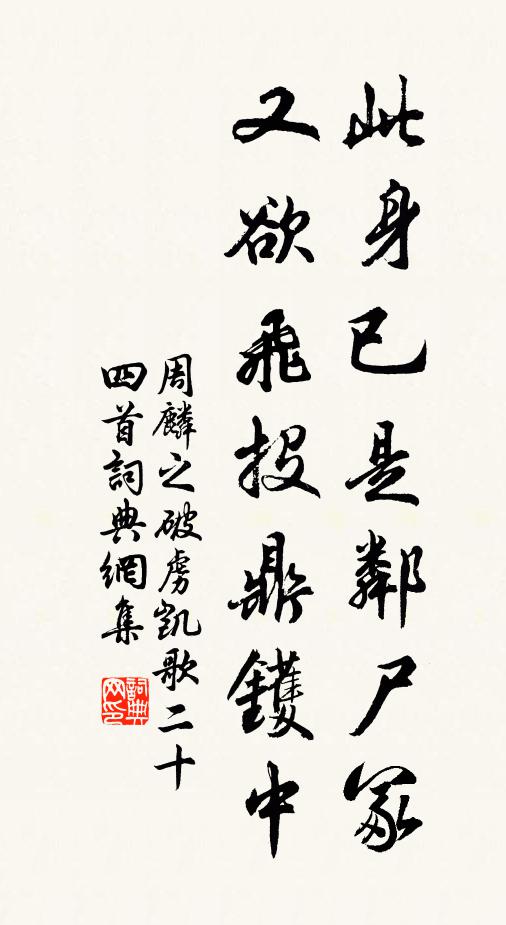 此身已是鄰尸冢
又欲飛投鼎鑊中
周麟之破虜凱歌二十
四首詞典網集
詞典网印